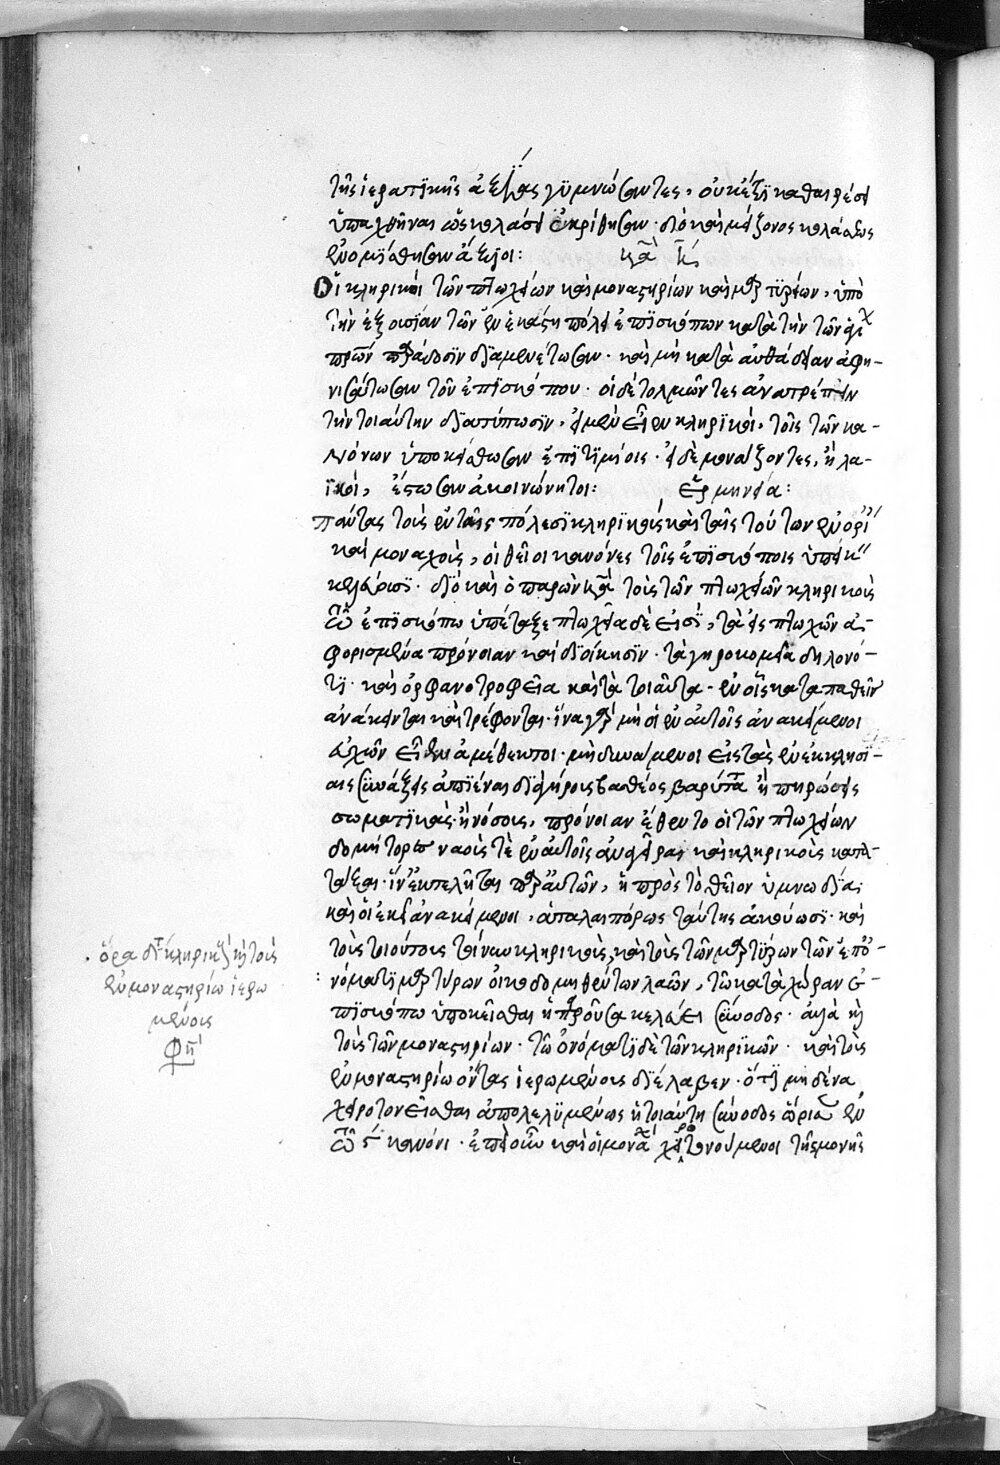 τῆς ἱερατικῆς ἀξίας γυμνώσωντες, οὐκέτι καθαιρέσει
ὑπαχθῆναι ὡς κολάσει ἐκρίθησαν· διὸ καὶ μείζονος κολάσεως
ἐνομίσθησαν ἄξιοι: κα η΄
Οἱ κληρικοὶ τῶν πτωχείων καὶ μοναστηρίων καὶ μαρτυρίων, ὑπὸ
τὴν ἐξουσίαν τῶν ἐν ἑκάστη πόλει ἐπισκόπων κατὰ τὴν τῶν ἁγί
πρων παράδοσιν διαμενέτωσαν· καὶ μὴ κατὰ αὐθάδειαν ἀφη-
νιάτωσαν τοῦ ἐπισκόπου· οἱ δὲ τολμῶντες ἀνατρέπειν
τὴν τοιαύτην διατύπωσιν, εἰ μὲν εἶεν κληρικοί, τοῖς τῶν κα-
νόνων ὑποκείσθωσαν ἐπιτιμίοις· εἰ δὲ μονάζοντες, ἢ λα-
ϊκοί, ἔστωσαν ἀκοινώνητοι: ἑρμηνεία:
Πάντας τοὺς ἐν ταῖς πόλεσι κληρικοὺς καὶ ταῖς τούτων ἐνορί
καὶ μοναχοὺς, οἱ θεῖοι κανόνες τοῖς ἐπισκόποις ὑπεῖκ
κελεύουσι· διὸ καὶ ὁ παρὼν κα τοὺς τῶν πτωχείων κληρικοὺς
τῶ ἐπισκόπω ὑπέταξε πτωχεῖα δὲ εἰσὶ, τὰ εἰς πτωχῶν ἀ-
φορισμένα πρόνοιαν καὶ διοίκησιν· τὰ γηροκομεῖα δηλονό-
τι· καὶ ὀρφανοτροφεῖα καὶ τὰ τοιαῦτα· ἐν οἷς καταπαθεῖν
ἀνάκεινται καὶ τρέφονται· ἵνα γὰρ μὴ οἱ ἐν αὐτοῖς ἀνακείμενοι
εὐχῶν εἶεν ἀμέθεκτοι· μὴ δυνάμενοι εἰς τὰς ἐν ἐκκλησί-
αις συνάξεις ἀπιέναι διὰ γήρους βαθέος βαρύτητα ἢ πηρώσεις
σωματικὰς ἢ νόσους, πρόνοιαν ἔθεντο οἱ τῶν πτωχείων
δομήτορες ναούς τε ἐν αὐτοῖς ἀνεγεῖραι καὶ κληρικοὺς κατα-
τάξαι· ἵν' ἐκτελῆται παρ' αὐτῶν, ἡ πρὸς τὸ θεῖον ὑμνωδία·
καὶ οἱ ἐκεῖ ἀνακείμενοι, ἀταλαιπώρως ταύτης ἀκούωσι· καὶ
τοὺς τοιούτους τοίνυν κληρικοὺς, καὶ τοὺς τῶν μαρτυρίων τῶν ἐπ' ὀ-
νόματι μαρτύρων οἰκοδομηθέντων λαῶν, τῶ κατὰ χώραν ἐ-
πισκόπω ὑποκεῖσθαι ἡ παροῦσα κελεύει σύνοδος· ἀλλὰ καὶ
τοὺς τῶν μοναστηρίων· τῶ ὀνόματι δὲ τῶν κληρικῶν· καὶ τοὺς
ἐν μοναστηρίω ὄντας ἱερωμένους διέλαβεν· ὅτι μηδένα
χειροτονεῖσθαι ἀπολελυμένως ἡ τοιαύτη σύνοδος ὥρισεν ἐν
τῶ ς΄ κανόνι· ἐπεὶ οὖν καὶ οἱ μοναχ χειροτονούμενοι τῆς μονῆς
ὅρα ὅτι κληρικοὶ καὶ τοὺς
ἐν μοναστηρίω ἱερω
μένους
φησί